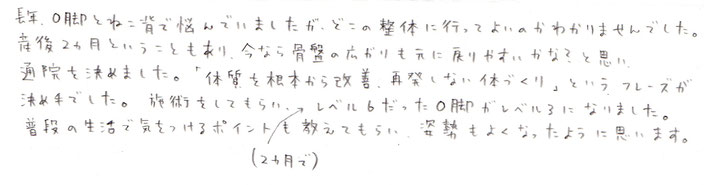 長年、O脚とねこ背で悩んでいましたが、どこの整体に行ってよいのかわかりませんでした。
産後2ヵ月ということもあり、今なら骨盤の広がりも元に戻りやすいかな?と思い、
通院を決めました。「体質を根本から改善、再発しない体づくり」というフレーズが
決め手でした。 施術をしてもらい、レベル6だったO脚がレベル3になりました。
普段の生活で気をつけるポイントも教えてもらい、姿勢もよくなったように思います。
(2ヵ月で)